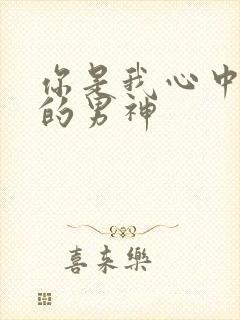 你是我心中
的男神
喜来樂